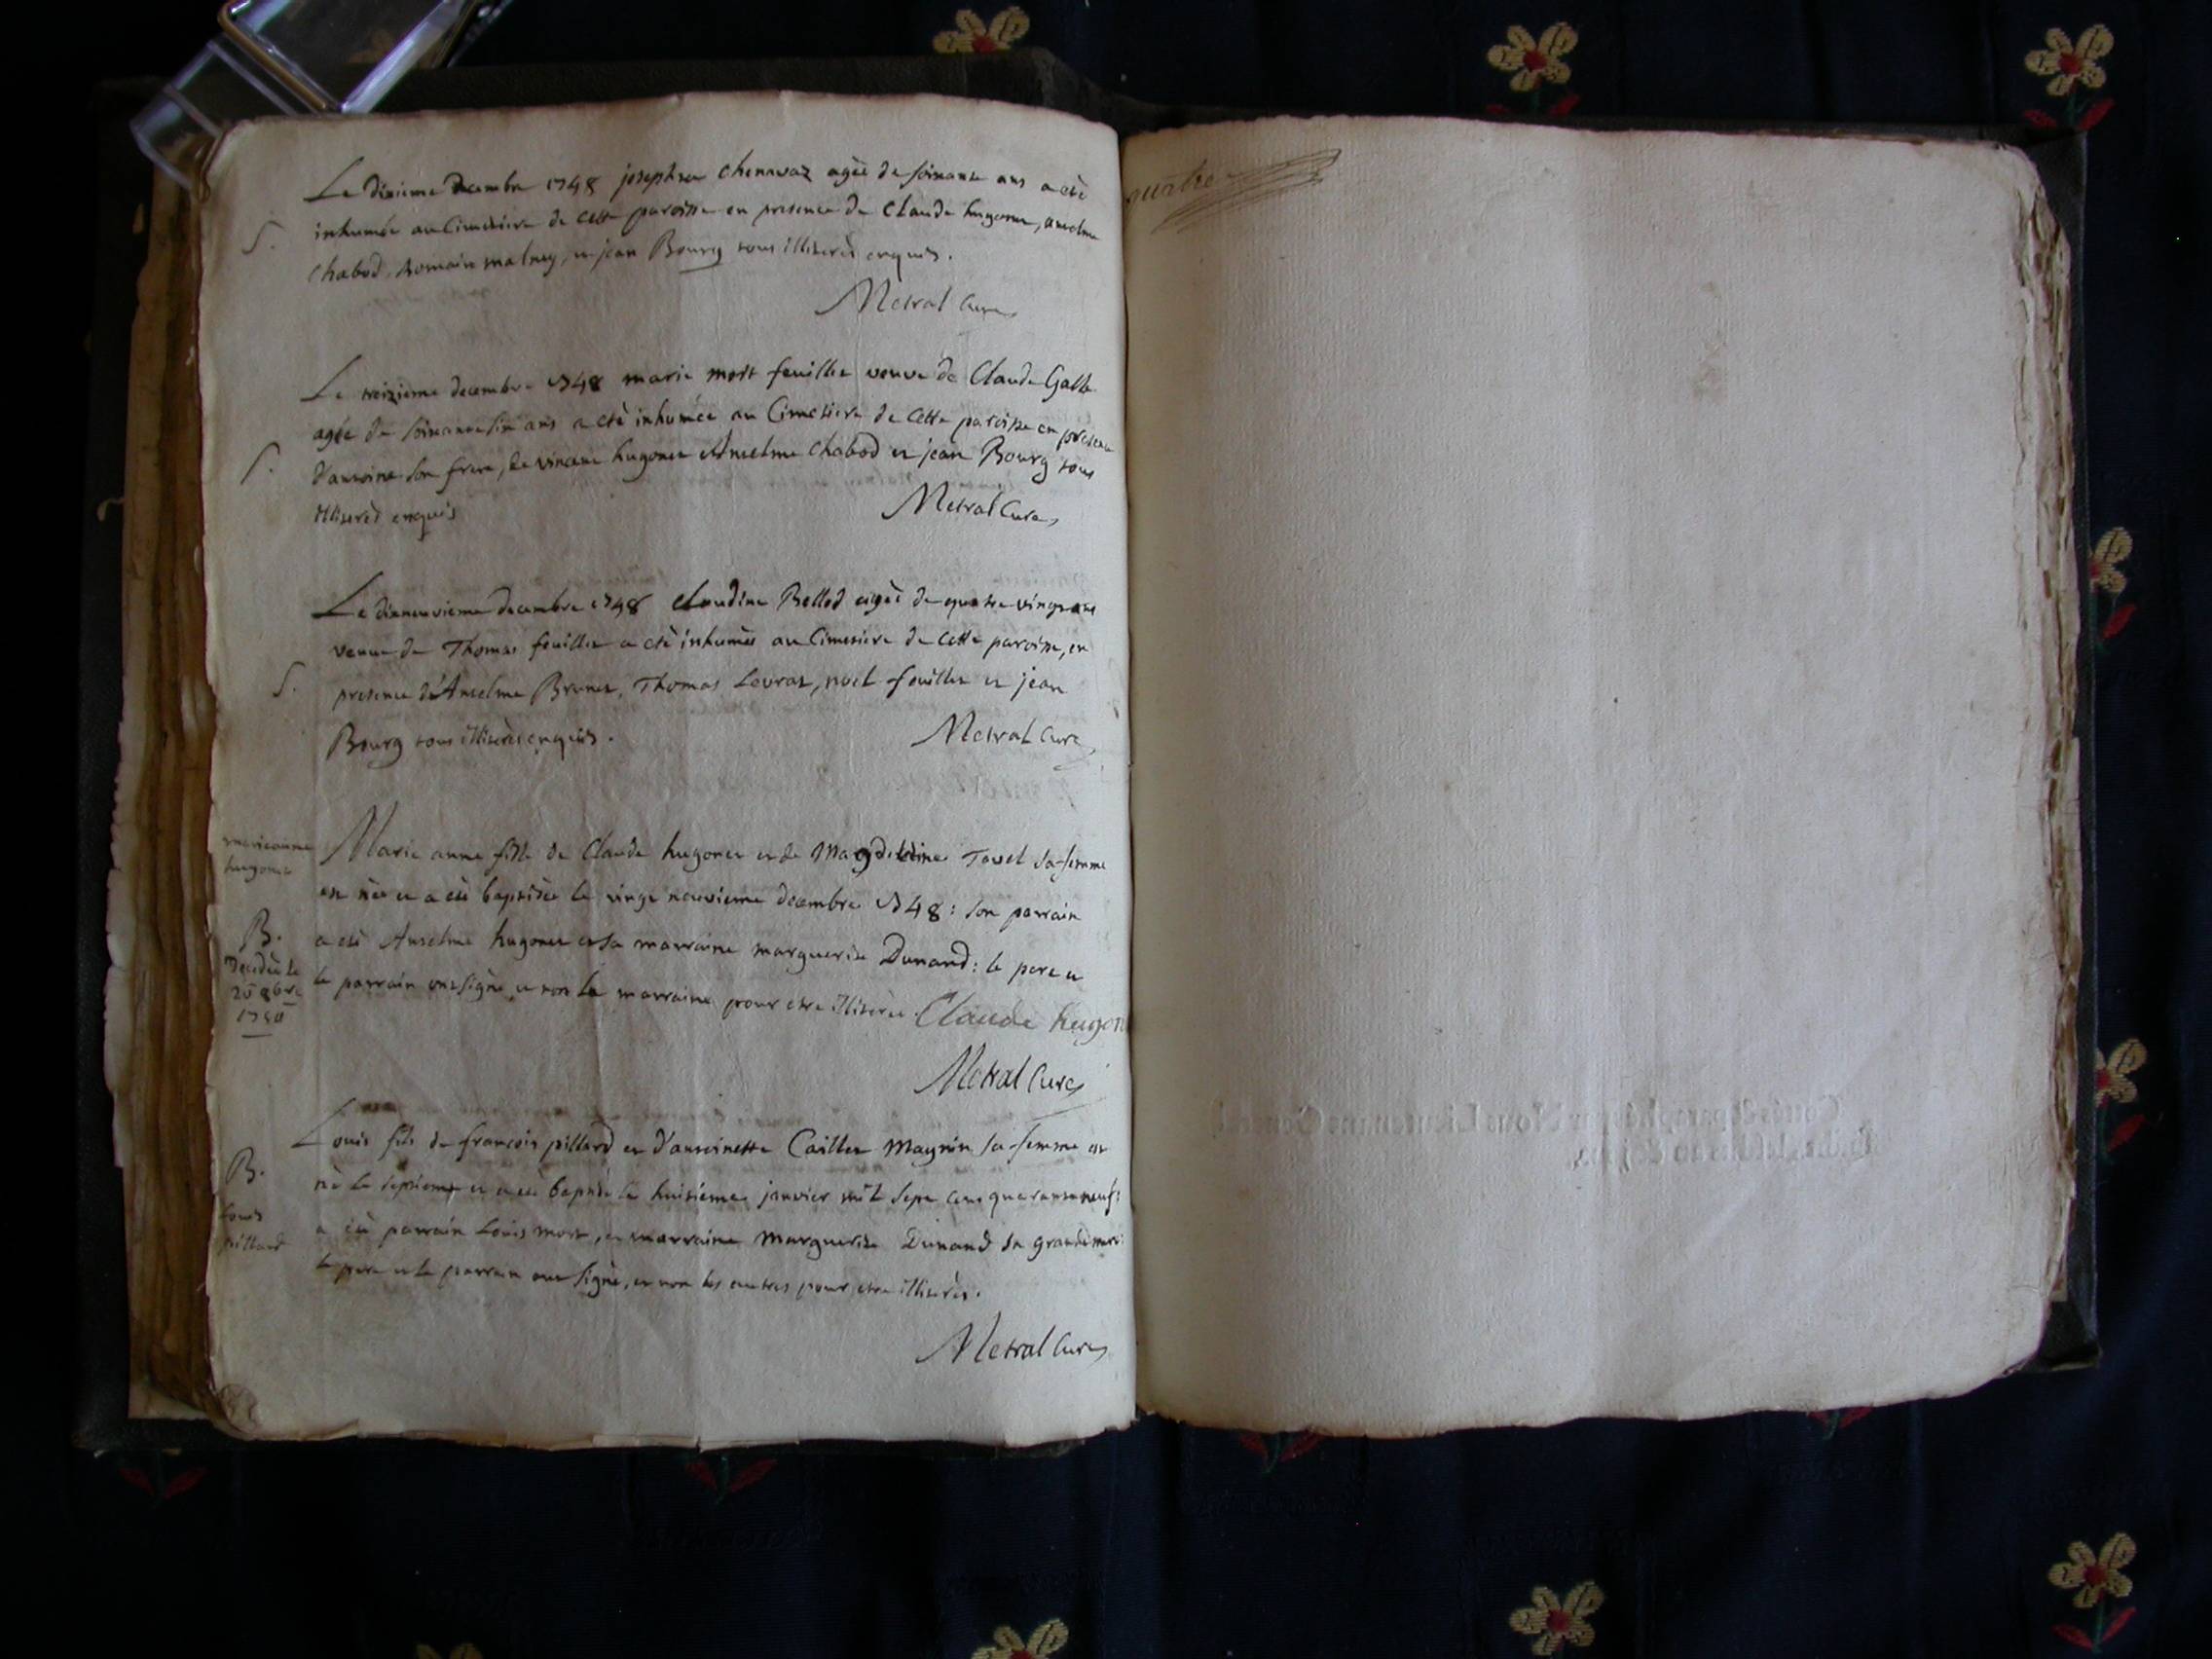 Le dixieme decembre 1748 josephte chenavaz agée de soixante ans a eté
inhumée au Cimetiere de cette paroisse en presence de Claude hugonet, anselme
S.
chabod, Romain malney, et jean Bourg tous illiterés enquis.
Metral Curé
Le treizieme decembre 1748 marie mort feuillet veuve de Claude Galle
agée de soixante six ans a eté inhumée au Cimetiere de cette paroisse en presence
S.
d'antoine son frere, de vincent hugonet Anselme Chabod et jean Bourg tous
illiterés enquis
Metral Curé
Le dixneuvieme decembre 1748 claudine Bellod agée de quatre vingt ans
veuve de Thomas feuillet a eté inhumée au Cimetiere de cette paroisse, en
S.
presence d'Anselme Brunet, Thomas Levrat, noel feuillet et jean
Bourg tous illiterés enquis.
Metral Curé
marieanne
hugonet
Marie anne fille de Claude hugonet et de Magdeleine Tavel sa femme
est née et a eté baptisée le vingt neuvieme decembre 1748: son parrain
B.
a eté Anselme hugonet et sa marraine marguerite Dunand: le pere et
decedée le
25 8bre
1750
le parrain ont signé et non la marraine pour etre illiterée. Claude hugon
Metral Curé
Louis fils de francois pillard et d'antoinette Caillet Maynin sa femme est
B.
né le septieme et a eté baptisé le huitieme janvier mil sept cent quarante neuf:
Louis
pillard
a eté parrain Louis mort, et marraine Marguerite Dunand sa grandemere:
le pere et le parrain ont signé, et non les autres pour etre illiterés.
Metral Curé